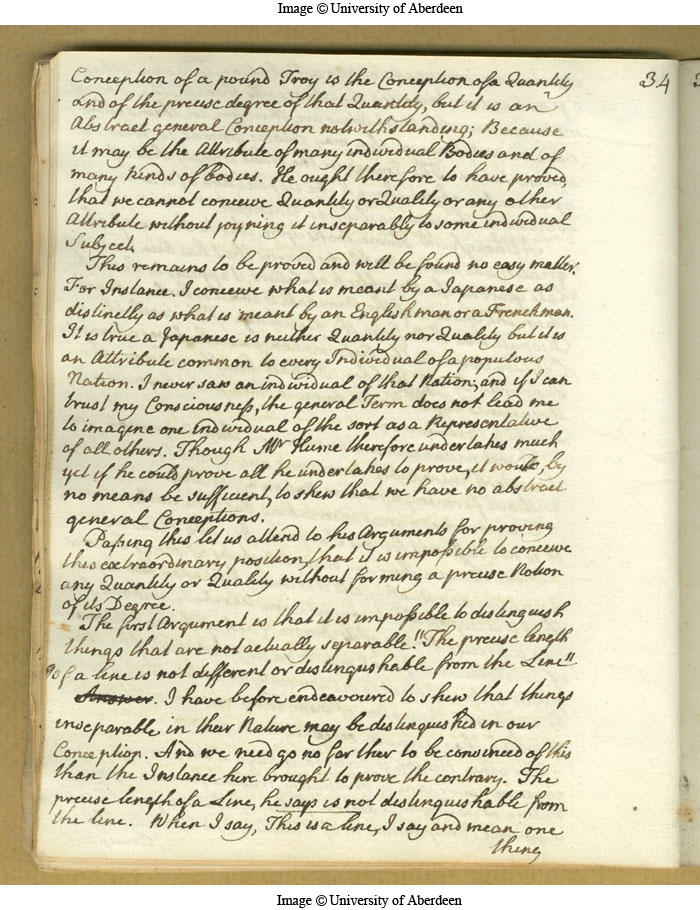 Image © University of Aberdeen
34
Conception of a pound Troy is the Conception of a Quantity
and of the precise degree of that Quantity, but it is an
Abstract general Conception notwithstanding; Because
it may be the Attribute of many individual Bodies and of
many kinds of bodies. He ought therefore to have proved,
that we cannot conceive Quantity or Quality or any other
Attribute without joyning it inseparably to some individual
Subject.
This remains to be proved and will be found no easy matter.
For Instance. I conceive what is meant by a Japanese as
distinctly as what is meant by an Englishman or a Frenchman.
It is true a Japanese is neither Quantity nor Quality but it is
an Attribute common to every Individual of a populous
Nation. I never saw an individual of that Nation; and if I can
trust my Consciousness, the general Term does not lead me
to imagine one Individual of the sort as a Representative
of all others. Though Mr Hume therefore undertakes much
yet if he could prove all he undertakes to prove, it would, by
no means be sufficient, to shew that we have no abstract
general Conceptions.
Passing this let us attend to his Arguments for proving
this extraordinary position, that it is impossible to conceive
any Quantity or Quality without forming a precise Notion
of its Degree.
The first Argument is that it is impossible to distinguish
things that are not actually separable. "The precise length
"of a line is not different or distinguishable from the Line"
Answer. I have before endeavoured to shew that things
inseparable in their Nature may be distinguished in our
Conception. And we need go no farther to be convinced of this
than the Instance here brought to prove the contrary. The
precise length of a Line, he says is not distinguishable from
the line. When I say, This is a line, I say and mean one
thing
Image © University of Aberdeen